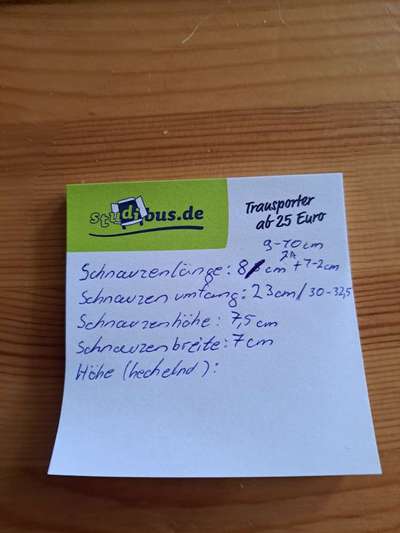 studibus.de
Transporter
ab 25 Euro
9-10cm
Schnauzenlänge: 8 cm +1-2cm
Schnauzenumfang: 23cm / 30-32,5
Schnauzenhöhe: 7,5cm
Schnauzenbreite: 7cm
Höhe (hechelnd):